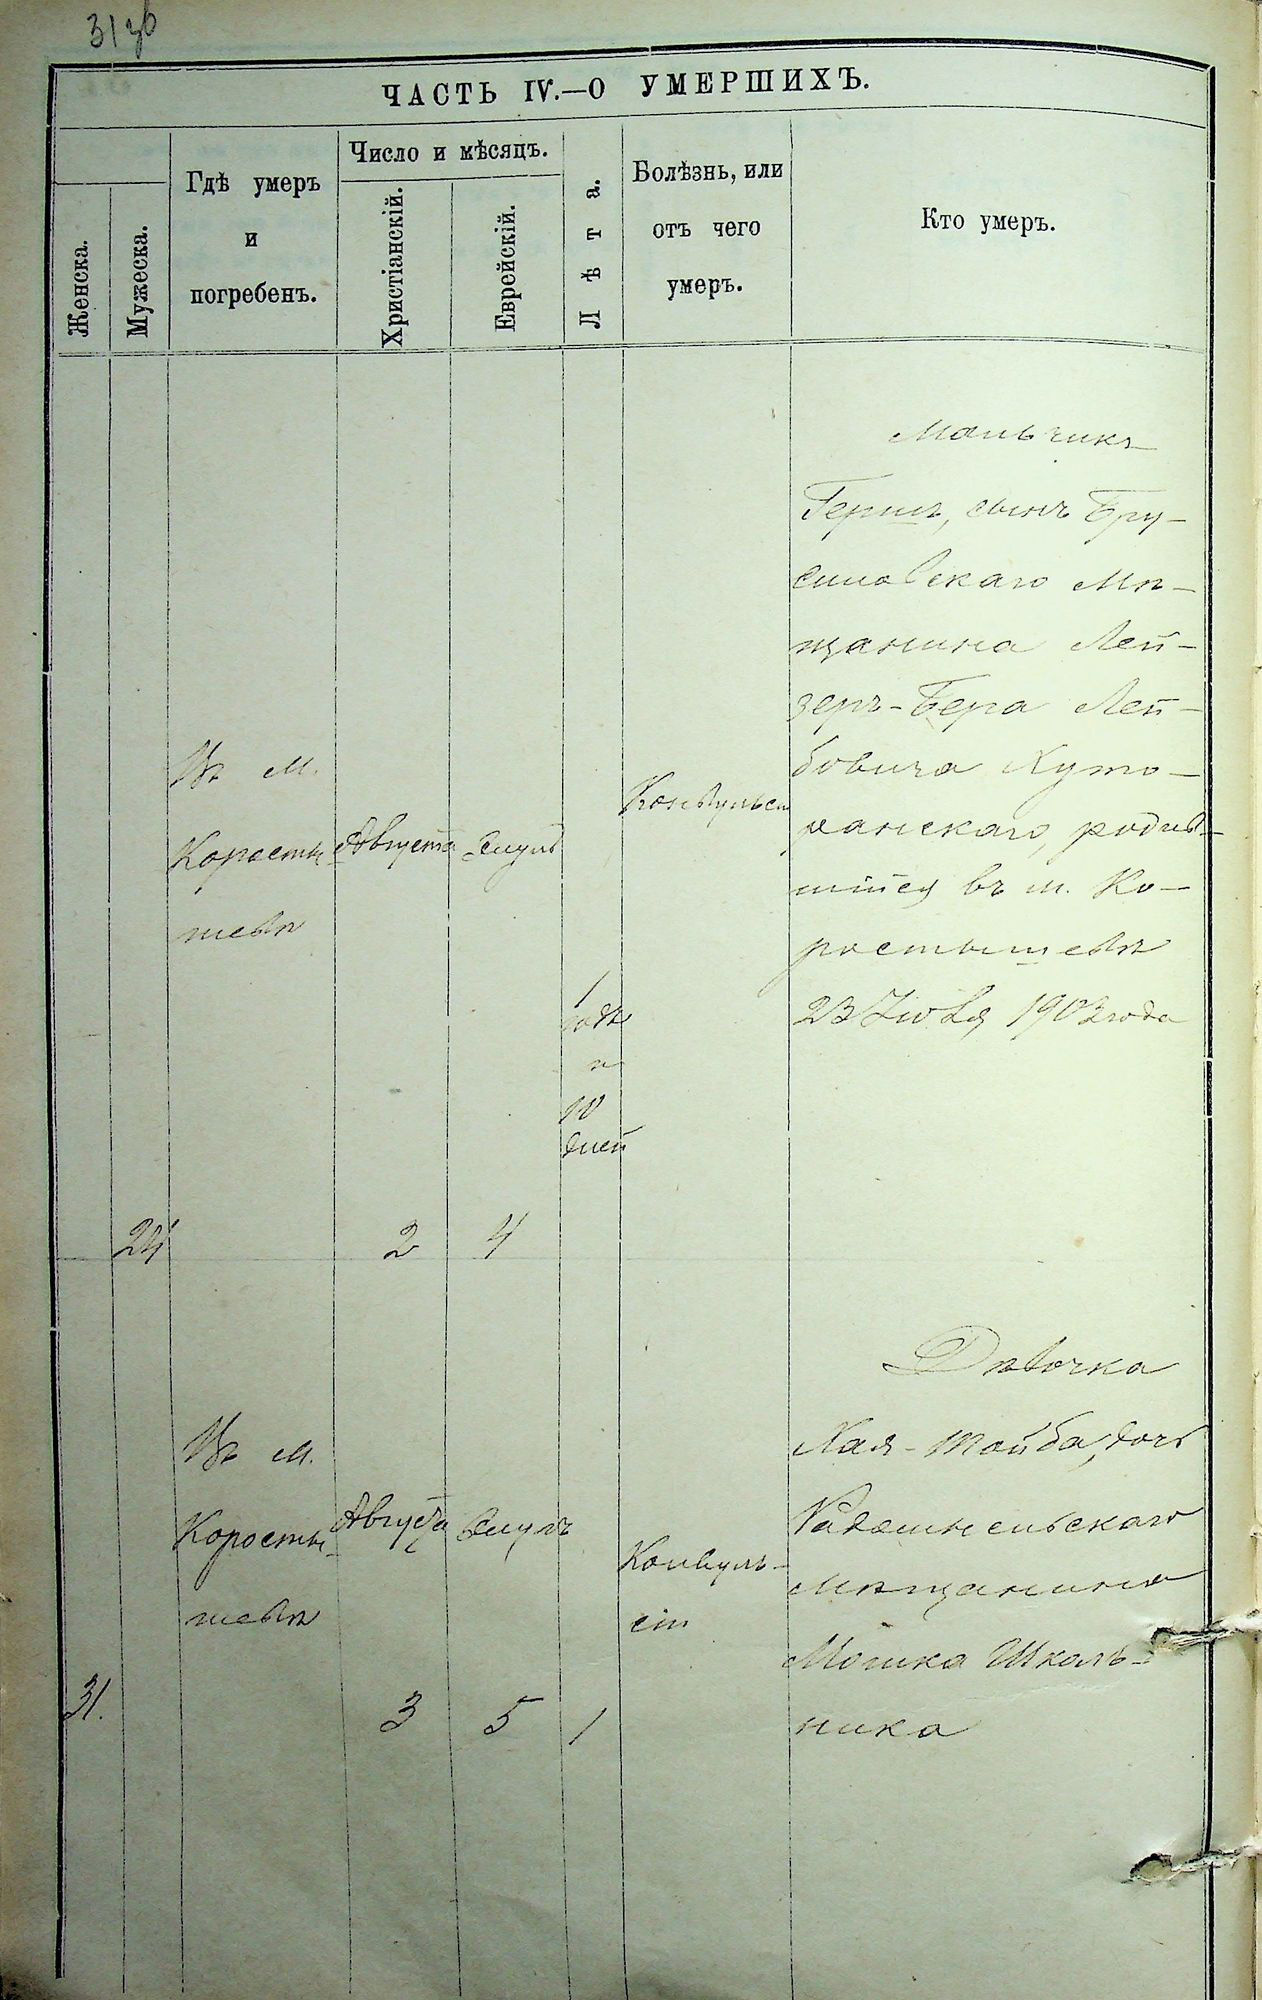 31 зб
ЧАСТЬ IV.—О УМЕРШИХЪ.
Женска.
Мужеска.
Гдѣ умеръ
и
погребенъ.
Число и мѣсяцъ.
Христіанскій.
Еврейскій.
Лѣта.
Болѣзнь, или
отъ чего
умеръ.
Кто умеръ.
24
Въ м.
Коросты-
шевѣ
Августа
2
Элулъ
4
1
года
и
10
дней
Конвульсіи
Мальчикъ
Гершъ, сынъ Бру-
силовскаго мѣ-
щанина Лей-
зеръ-Бера Лей-
бовича Куто-
ванскаго, родив-
шійся въ м. Ко-
ростышевѣ
23 Іюля 1903 года
31.
Въ м.
Коросты-
шевѣ
Августа
3
Элулъ
5
1
Конвуль-
сіи
Дѣвочка
Хая-Тойба, дочь
Радомысльскаго
мѣщанина
Мошка Школь-
ника